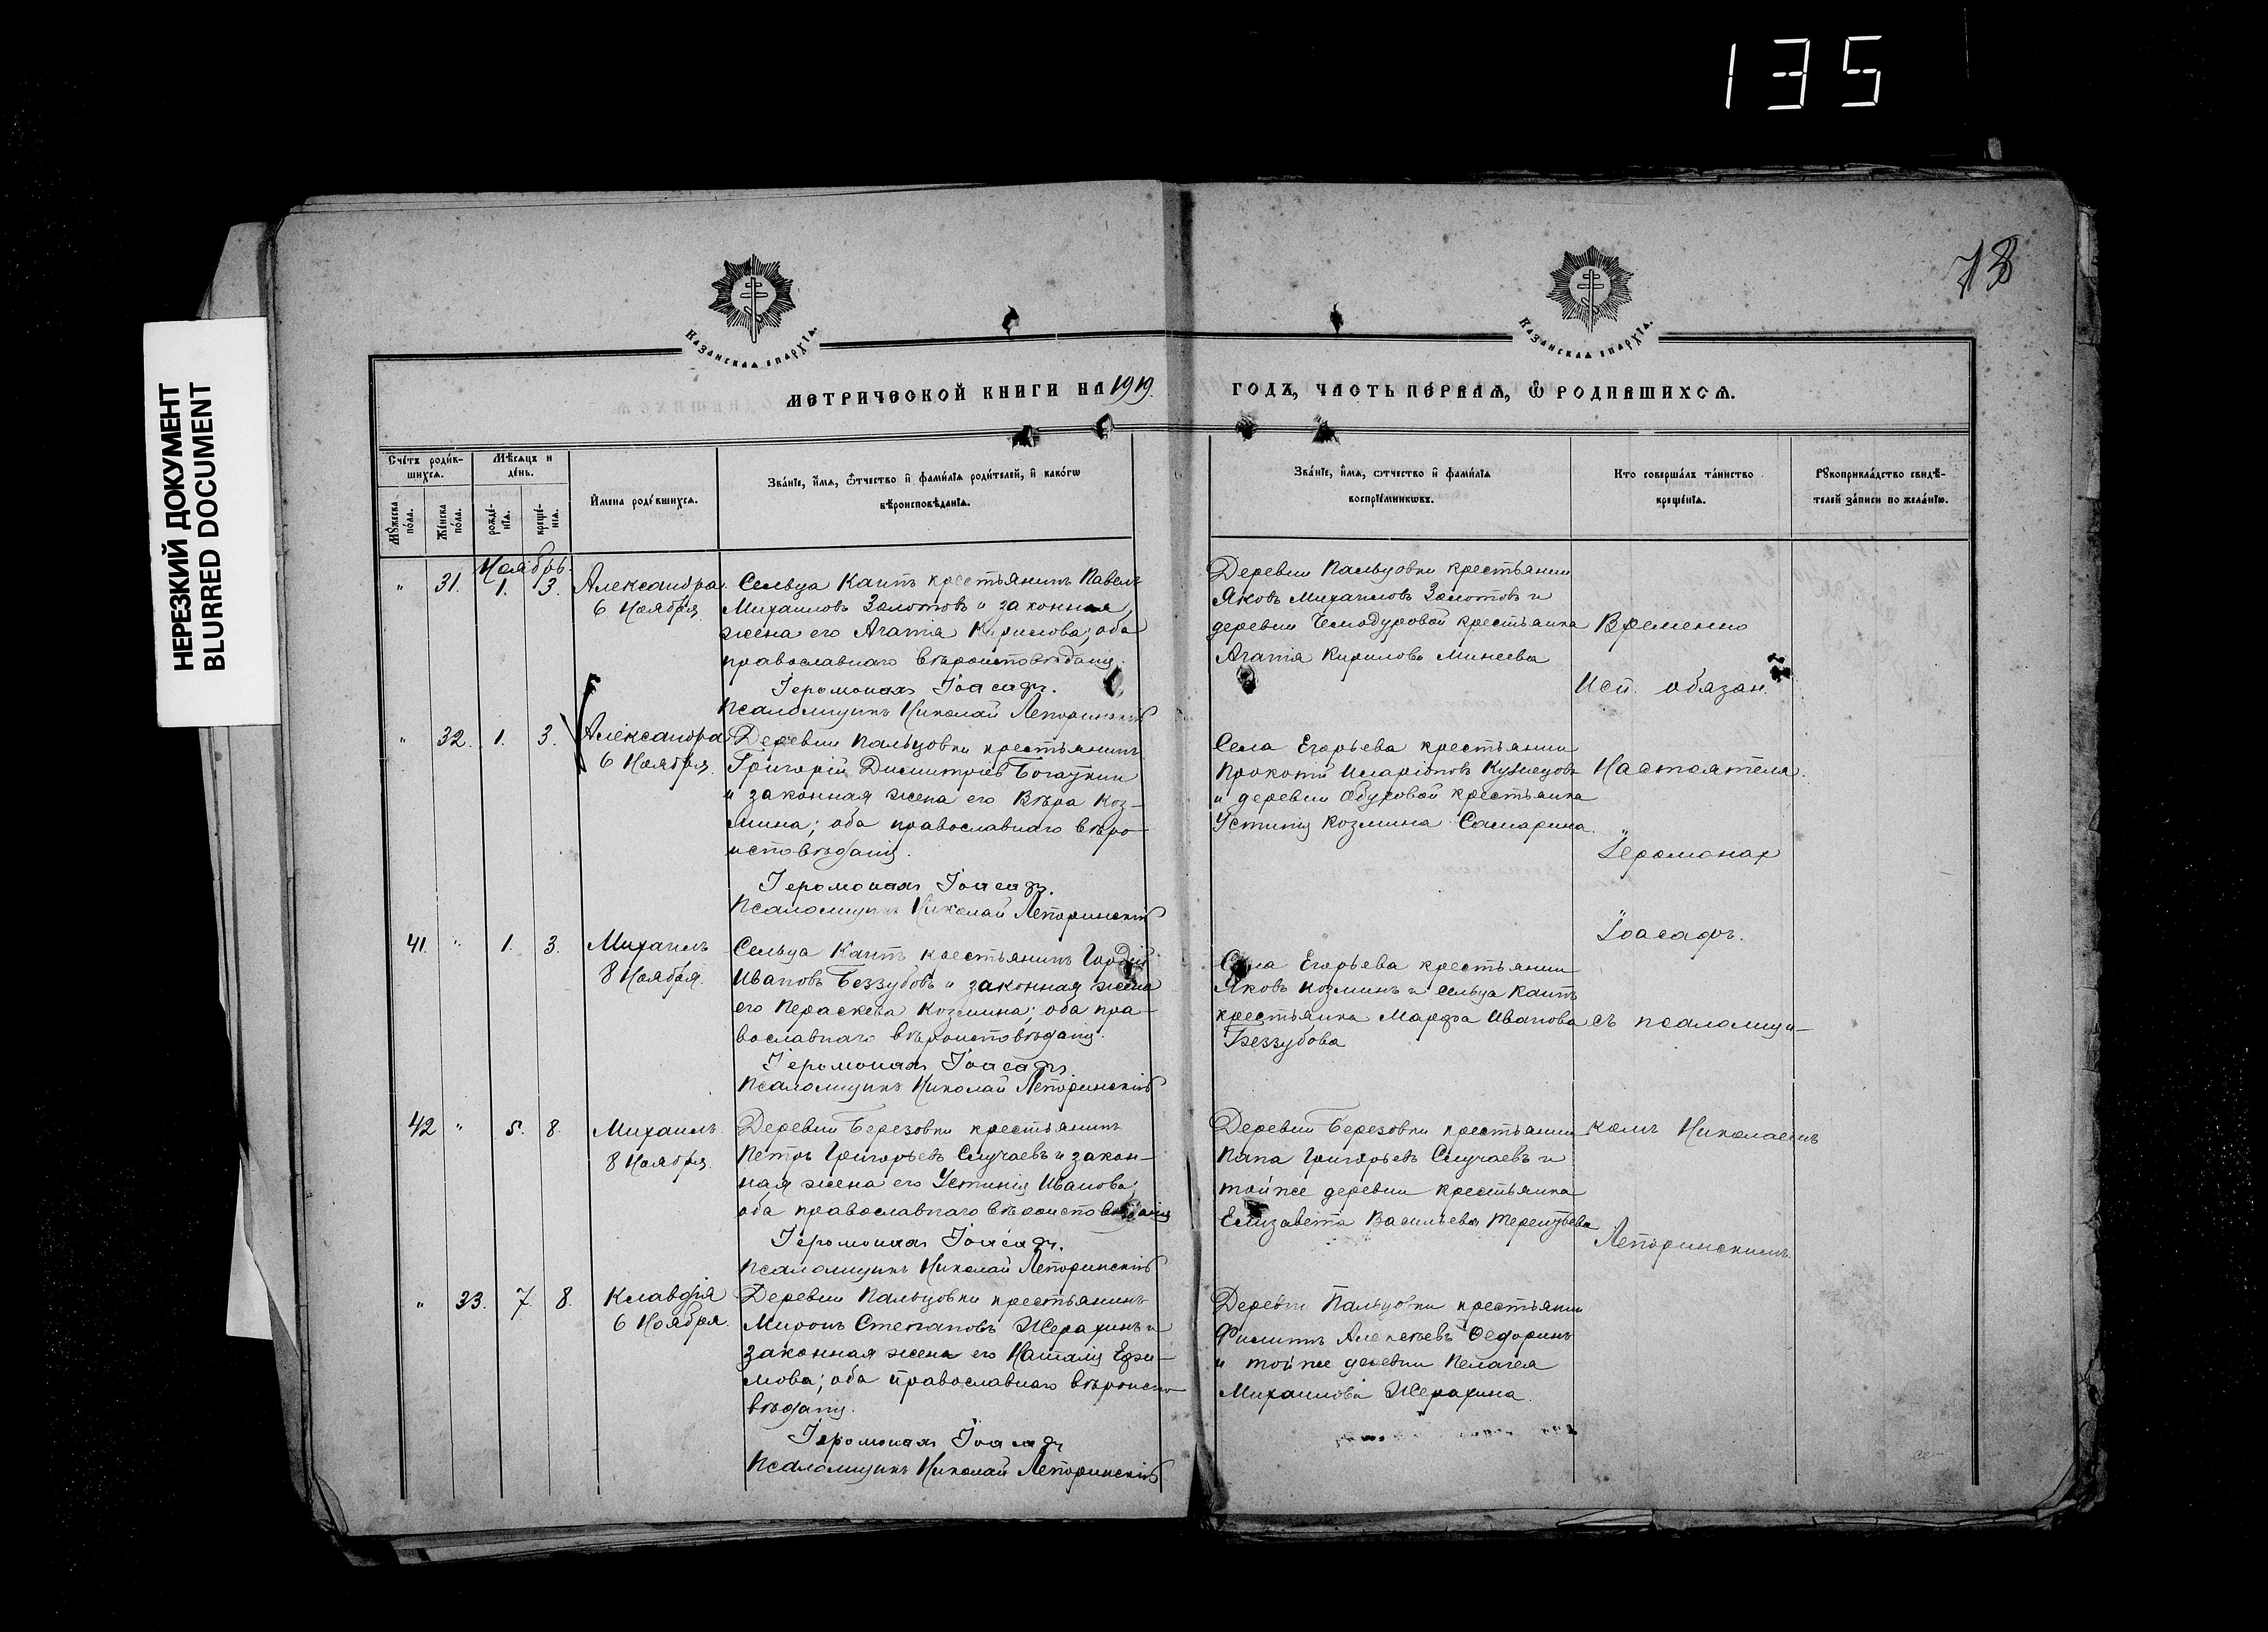 135
НЕРЕЗКИЙ ДОКУМЕНТ
BLURRED DOCUMENT
78
Казанская епархія.
Казанская епархія.
МЕТРИЧЕСКОЙ КНИГИ НА 1919
ГОДЪ, ЧАСТЬ ПЕРВАЯ, Ѿ РОДИВШИХСЯ.
Счетъ родив-
шихся.
Мѣсяцъ и
день.
Мужеска
пола.
Женска
пола.
рожде-
нія.
креще-
нія.
Имена родившихся.
Званіе, имя, ѿтчество и фамилія родителей, и какогѡ
вѣроисповѣданія.
Званіе, имя, ѿтчество и фамилія
воспріемникѡвъ.
Кто совершалъ таинство
крещенія.
Рукоприкладство свидѣ-
телей записи по желанію.
Ноябрь.
" 31. 1. 3. Александра
6 Ноября.
Сельца Каипъ крестьянинъ Павелъ
Михаиловъ Золотовъ и законная
жена его Агапія Кирилова; оба
православнаго вѣроисповѣданія.
Іеромонахъ Іоасафъ.
Псаломщикъ Николай Лепоринскій
Деревни Пальцовки крестьянин
Яковъ Михаиловъ Золотовъ и
деревни Чемодуровой крестьянка
Агапія Кирилова Минеева
" 32. 1. 3. Александра
6 Ноября.
Деревни Пальцовки крестьянинъ
Григорій Димитріев Богаткин
и законная жена его Вѣра Коз-
мина; оба православнаго вѣро-
исповѣданія.
Іеромонахъ Іоасафъ.
Псаломщикъ Николай Лепоринскій
Села Егорьева крестьянин
Прокопій Иларіоновъ Кузнецовъ
и деревни Обуховой крестьянка
Устинія Козмина Самарина.
41. " 1. 3. Михаилъ
8 Ноября.
Сельца Каипъ крестьянинъ Гордій
Ивановъ Беззубовъ и законная жена
его Параскева Козмина; оба пра-
вославнаго вѣроисповѣданія.
Іеромонахъ Іоасафъ.
Псаломщикъ Николай Лепоринскій
Села Егорьева крестьянин
Яковъ Козминъ и сельца Каипъ
крестьянка Марфа Иванова
Беззубова
42 " 5. 8. Михаилъ.
8 Ноября.
Деревни Березовки крестьянинъ
Петръ Григорьевъ Случаевъ и закон-
ная жена его Устинія Иванова;
оба православнаго вѣроисповѣданія
Іеромонахъ Іоасафъ.
Псаломщикъ Николай Лепоринскій
Деревни Березовки крестьянин
Григорьевъ Случаевъ и
тойже деревни крестьянка
Елизавета Васильева Терентьева
" 33. 7. 8. Клавдія
6 Ноября.
Деревни Пальцовки крестьянинъ
Миронъ Степановъ Жерахинъ и
законная жена его Наталія Ефи-
мова; оба православнаго вѣроиспо-
вѣданія.
Іеромонахъ Іоасафъ
Псаломщикъ Николай Лепоринскій
Деревни Пальцовки крестьянин
Филиппъ Алексѣевъ Федоринъ
и тойже деревни Пелагея
Михаилова Жерахина.
Временно
Исп. обязан.
Настоятеля
Іеромонах
Іоасафъ.
съ псаломщи-
комъ Николаемъ
Лепоринскимъ.